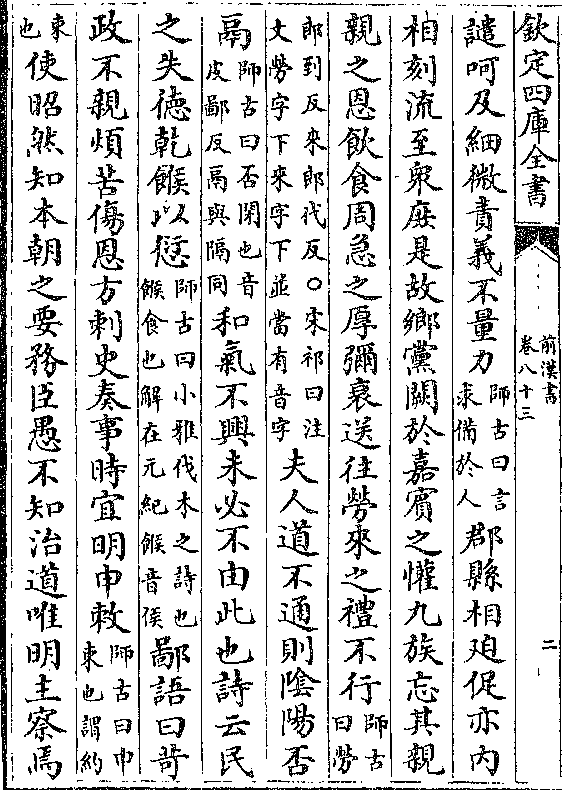 欽定四庫全書
前漢書
卷八十三
二
譴呵及細微責義不量力師古曰言求備於人郡縣相廹促亦内
相刻流至衆庶是故鄉黨闕於嘉賔之懽九族忘其親
親之恩飲食周急之厚彌衰送往勞來之禮不行師古曰勞
郎到反來郎代反○宋祁曰注文勞字下來字下並當有音字夫人道不通則隂陽否
鬲師古曰否閉也音皮鄙反鬲與隔同和氣不興未必不由此也詩云民
之失徳乾餱以愆師古曰小雅伐木之詩也餱食也解在元紀餱音侯鄙語曰苛
政不親煩苦傷恩方刺史奏事時宜明申敕師古曰申束也謂約
束也使昭然知本朝之要務臣愚不知治道唯明主察焉